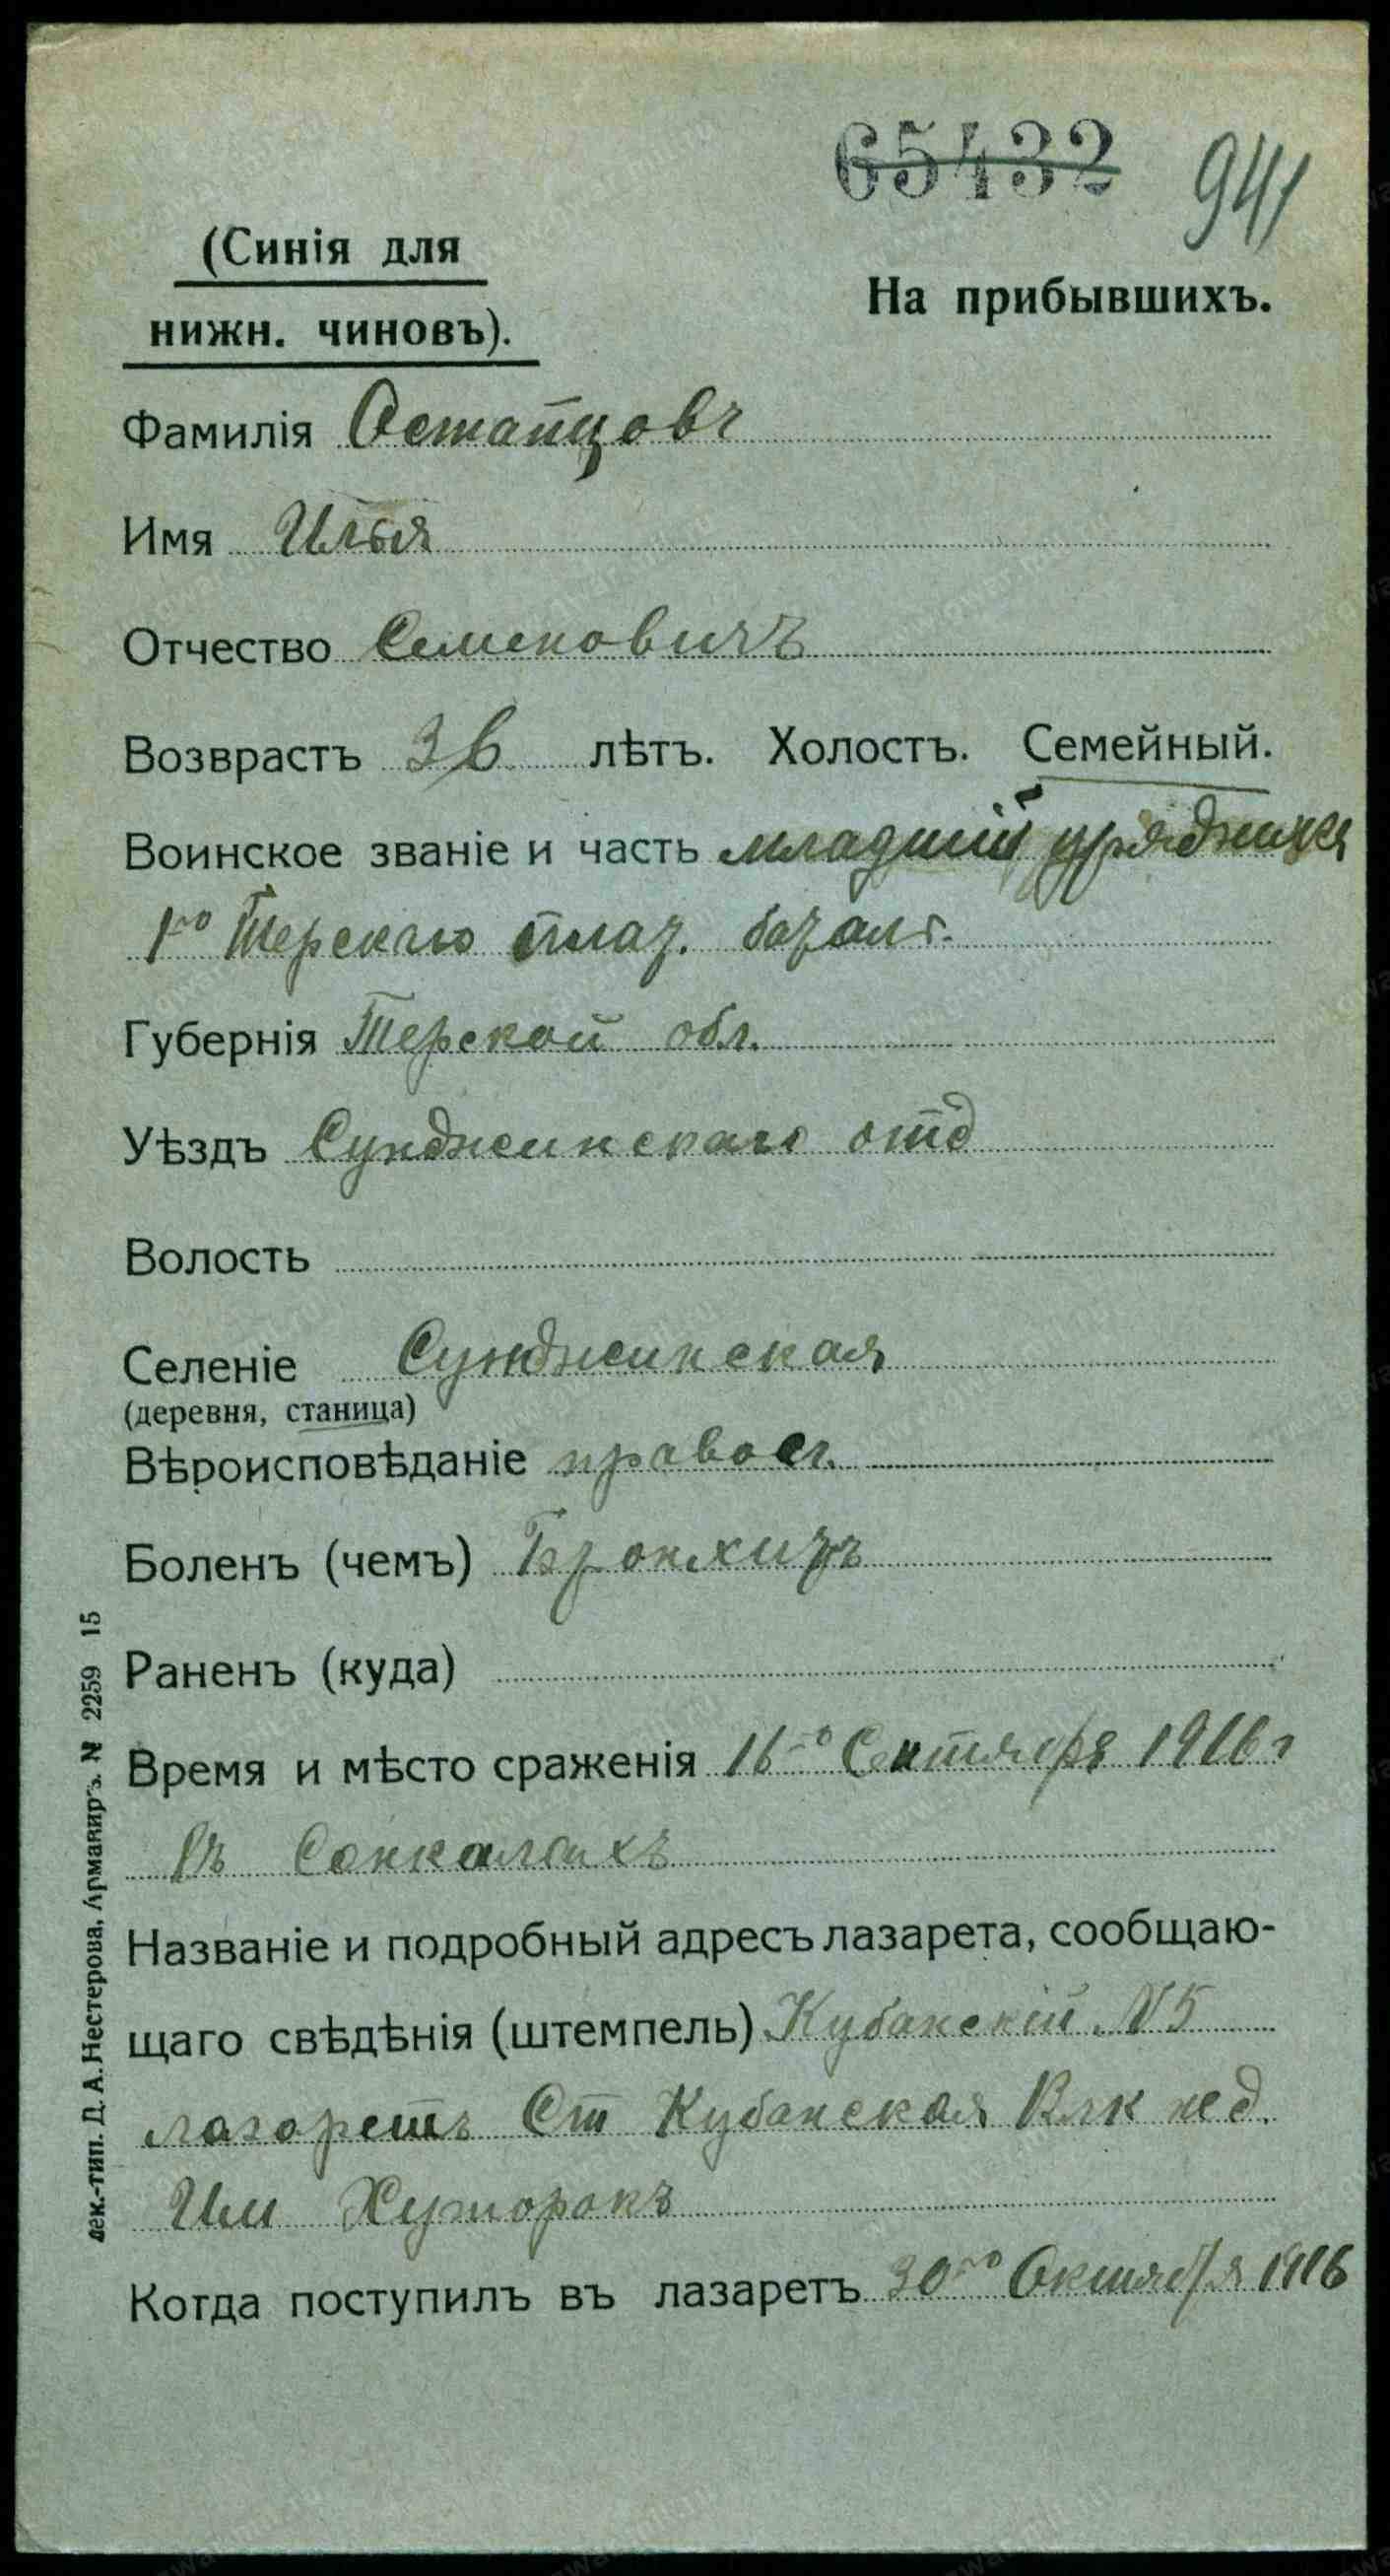 65432 941
(Синія для
На прибывшихъ.
нижн. чиновъ).
Фамилія Остапцовъ
Имя Илья
Отчество Семеновичъ
Возврастъ 36 лѣтъ. Холостъ. Семейный.
Воинское званіе и часть младшій урядникъ
1го Терскаго плас. батал.
Губернія Терской обл.
Уѣздъ Сунджинскаго отд
Волость
Селеніе Сунджинская
(деревня, станица)
Вѣроисповѣданіе правосл.
Боленъ (чемъ) Бронхитъ
Раненъ (куда)
Время и мѣсто сраженія 16го Сентября 1916 г
въ
Названіе и подробный адресъ лазарета, сообщаю-
щаго свѣдѣнія (штемпель) Кубанскій N5
лазаретъ Ст Кубанская Влк жед.
Им Хуторокъ
Когда поступилъ въ лазаретъ 30го Октября 1916
лек.-тип. Д. А. Нестерова, Армавиръ. № 2259 15